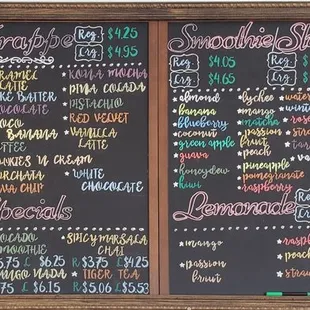 Frappe
Reg. $4.25
Lrg. $4.95
CARAMEL
LATTE
CAKE BATTER
COCO
BANANA
COOKIES 'N CREAM
HORCHATA
CHIP
KONA MOCHA
PINA COLADA
PISTACHIO
RED VELVET
VANILLA
LATTE
WHITE
CHOCOLATE
Specials
AVOCADO
SMOOTHIE
L $6.25
MANGO NADA
L $6.15
SPICY MARSALA
CHAI
R $3.75 L $4.25
TIGER TEA
R $5.06 L $5.53
Smoothie
Reg. $4.05
Lrg. $4.65
almond
banana
blueberry
coconut
green apple
guava
honeydew
kiwi
lychee
mango
matcha
passion
fruit
peach
pineapple
pomegranate
raspberry
Lemonade
mango
passion
fruit